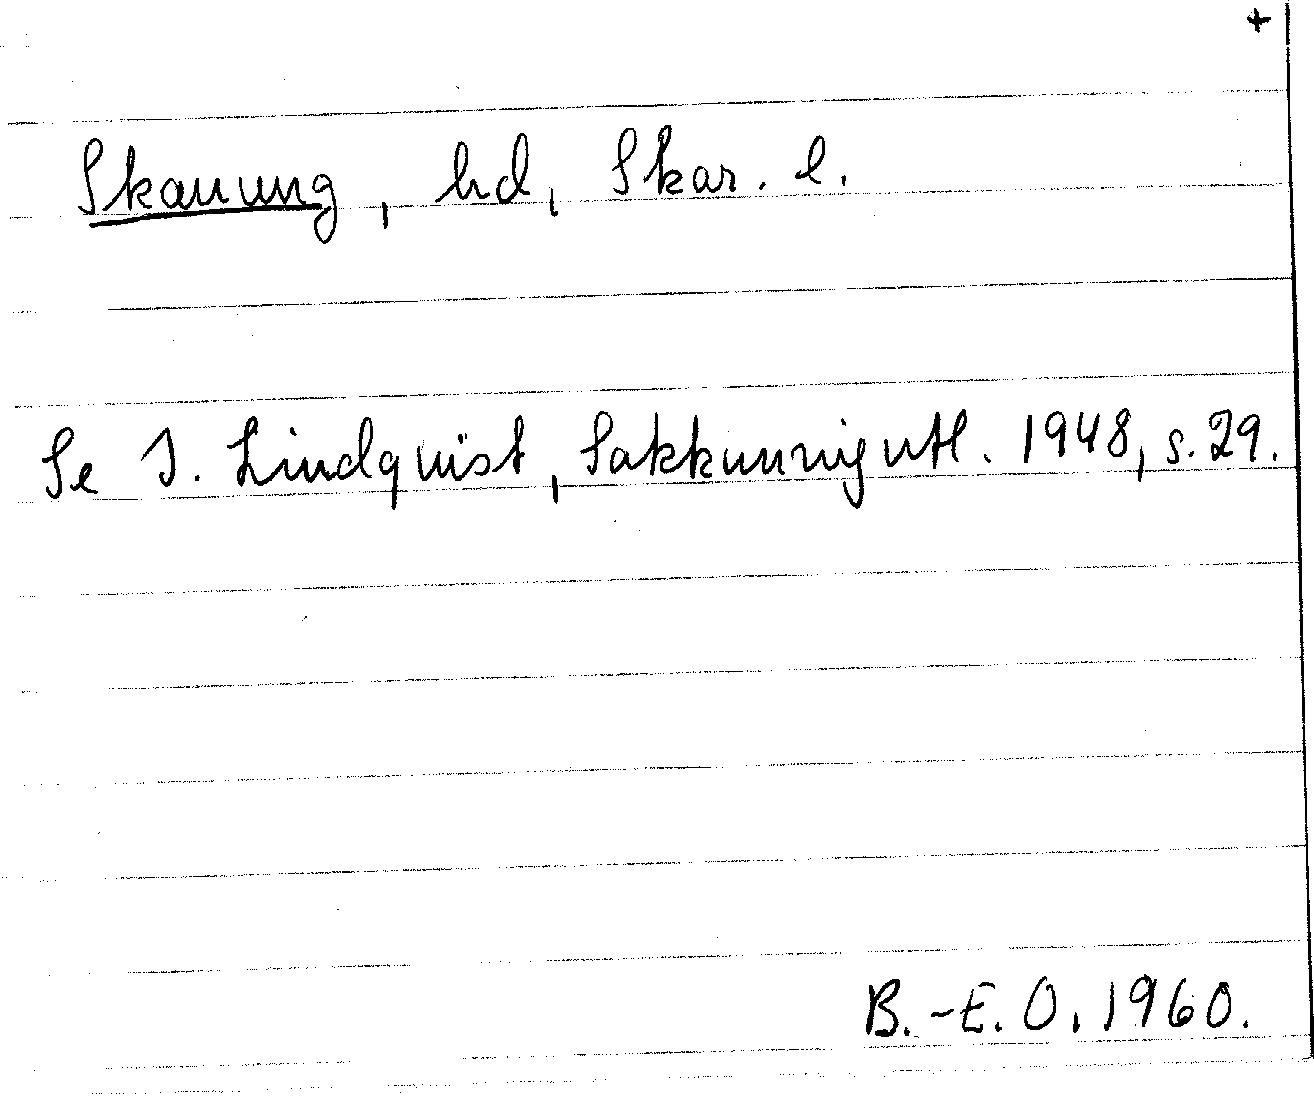 +
Skanung, hd, Skar. l.
Se I. Lindquist, Sakkunnigutl. 1948, s. 29.
B.-E. O. 1960.